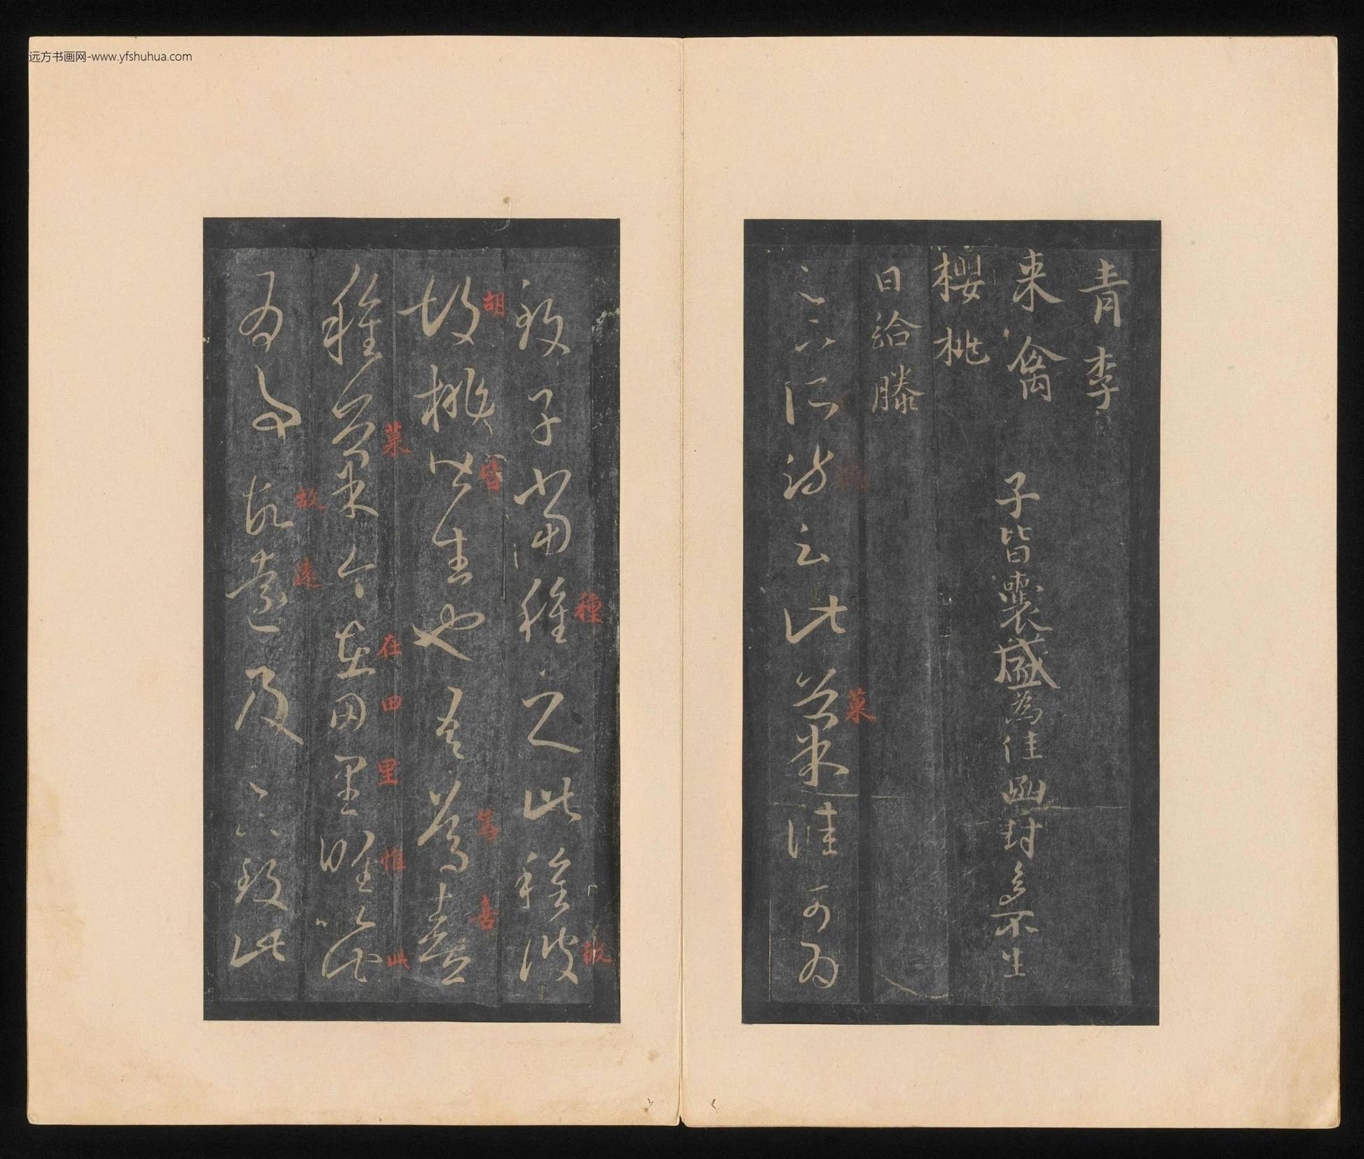 远方书画网-www.yfshuhua.com
青李
来禽 子皆囊盛為佳函封多不生
櫻桃
日給滕
足下所疏云此菓佳可為
菓
致子當種之此種彼
種
胡桃皆生也吾篤喜
胡 皆 篤 喜
種菓今在田里唯以此
菓 在 田 里 惟 此
為事故遠及足下致此
故 遠